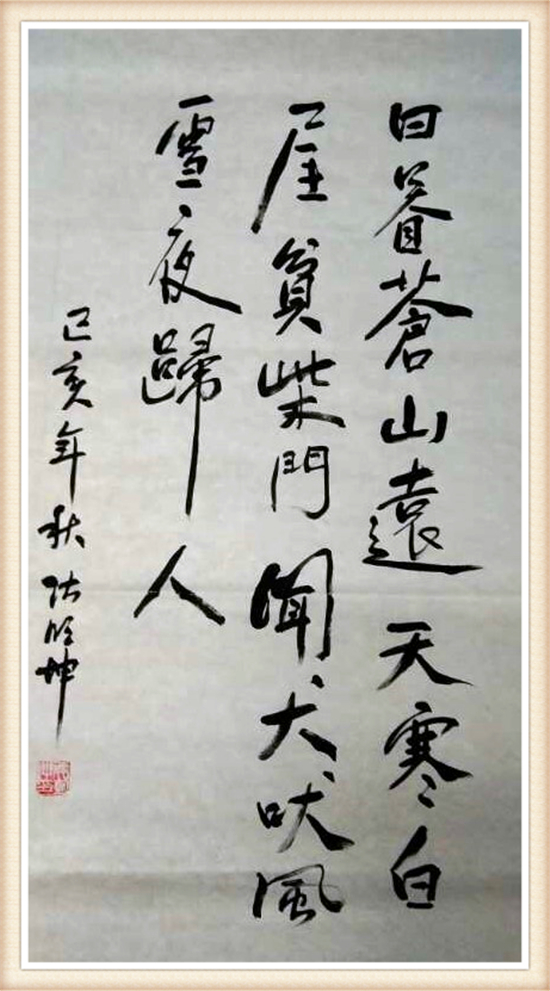 日暮蒼山遠天寒白
屋貧柴門聞犬吠風
雪夜歸人
己亥年秋張旭坤